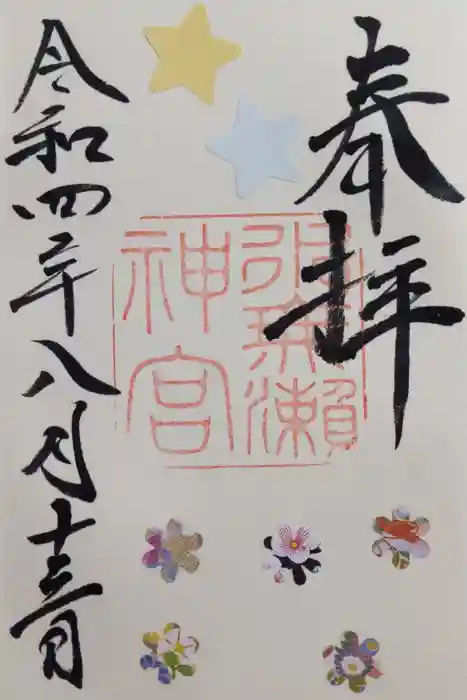 奉拝
瀨
神宮
令和四年八月十三日